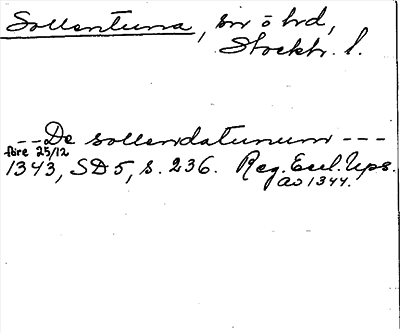 Sollentuna, sn o hd,
Stockh. l.
-- De sollendatunum ---
före 25/12
1343, SD 5, s. 236. Reg. Eccl. Ups.
ao 1344.